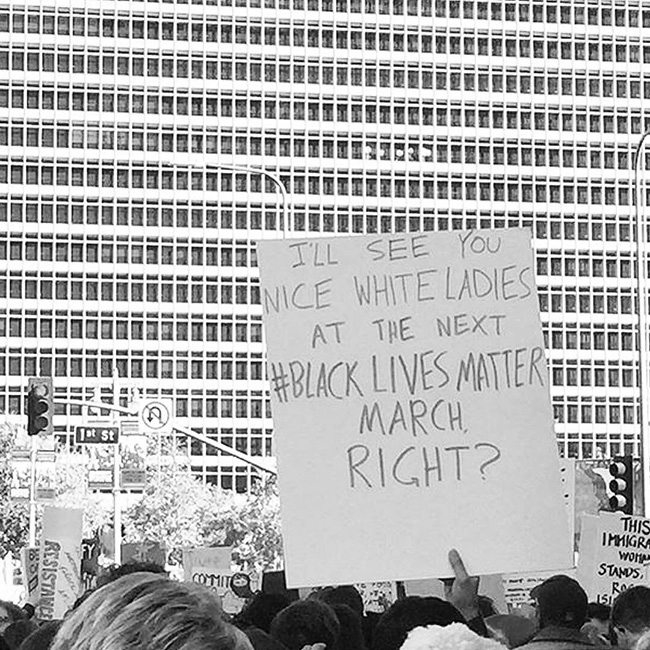 I'LL SEE YOU
NICE WHITE LADIES
AT THE NEXT
#BLACK LIVES MATTER
MARCH,
RIGHT?
1st St
RESISTANCE
COMMIT
THIS
IMMIGRA
WOMA
STANDS,